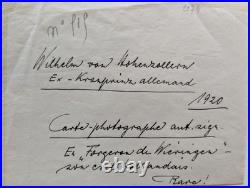 n° 515
Wilhelm von Hohenzollern
Ex-Kronprinz allemand
1920
Carte-photographe aut. sign.
Ex "Forgeron de Wieringen"
son exil hollandais.
Rare!